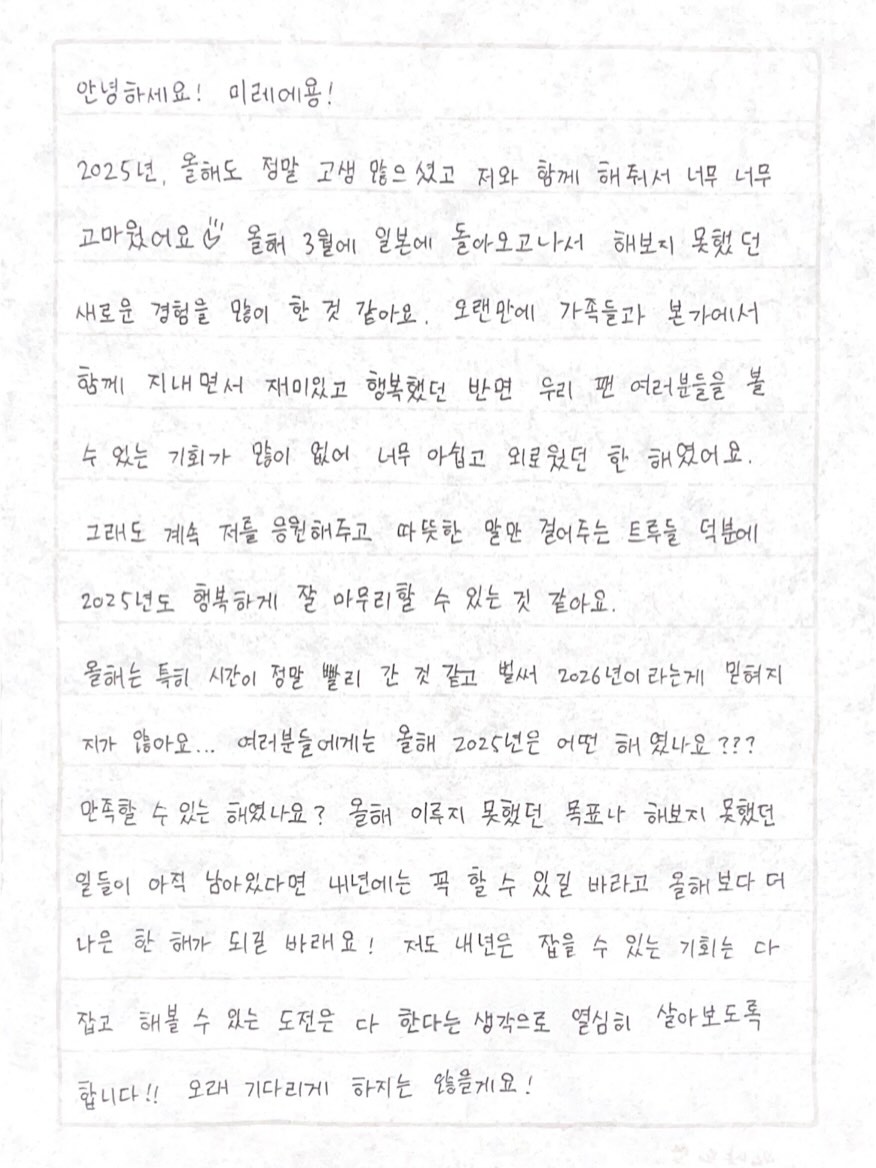 안녕하세요! 미레에용!
2025년, 올해도 정말 고생 많으셨고 저와 함께 해줘서 너무 너무
고마웠어요 올해 3월에 일본에 돌아오고나서 해보지 못했던
새로운 경험을 많이 한 것 같아요. 오랜만에 가족들과 본가에서
함께 지내면서 재미있고 행복했던 반면 우리 팬 여러분들을 볼
수 있는 기회가 많이 없어 너무 아쉽고 외로웠던 한 해였어요.
그래도 계속 저를 응원해주고 따뜻한 말만 걸어주는 트루들 덕분에
2025년도 행복하게 잘 마무리할 수 있는 것 같아요.
올해는 특히 시간이 정말 빨리 간 것 같고 벌써 2026년이라는게 믿혀지
지가 않아요... 여러분들에게는 올해 2025년은 어떤 해였나요???
만족할 수 있는 해였나요? 올해 이루지 못했던 목표나 해보지 못했던
일들이 아직 남아있다면 내년에는 꼭 할 수 있길 바라고 올해보다 더
나은 한 해가 되길 바래요! 저도 내년은 잡을 수 있는 기회는 다
잡고 해볼 수 있는 도전은 다 한다는 생각으로 열심히 살아보도록
합니다!! 오래 기다리게 하지는 않을게요!